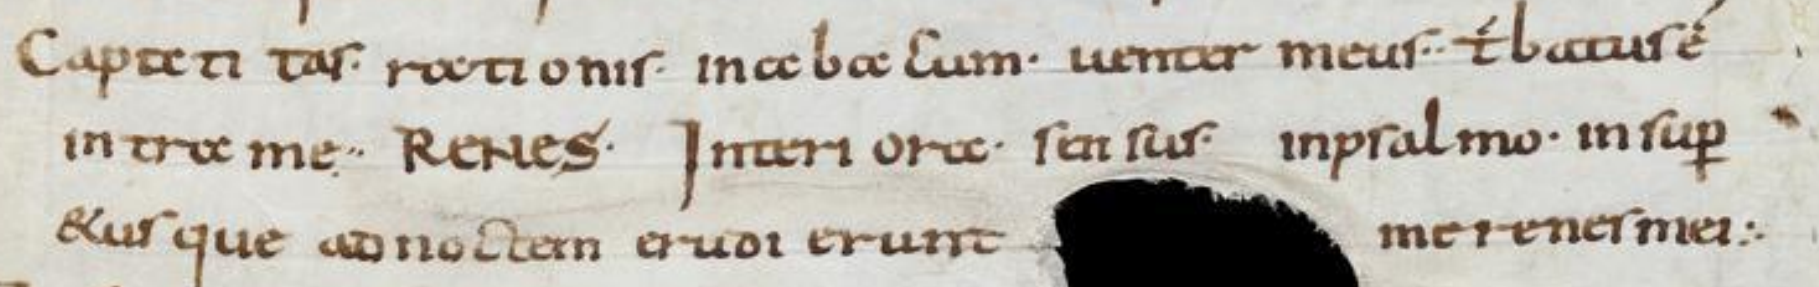 Capaci tas rationis. in abacum. uenter meus. t́batus é
intra me. RENES. Interiora. sensus. in psalmo. insup̲
&usque ad noctem erudierunt me renes mei.